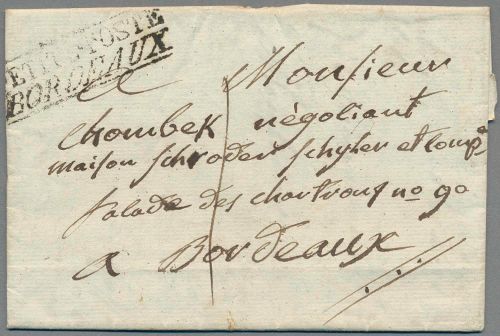 PETITE POSTE
BORDEAUX
A Monsieur
Chombek négotiant
maison Schroder Schyler et Comp.
façade des chartrons no 90
a Bordeaux